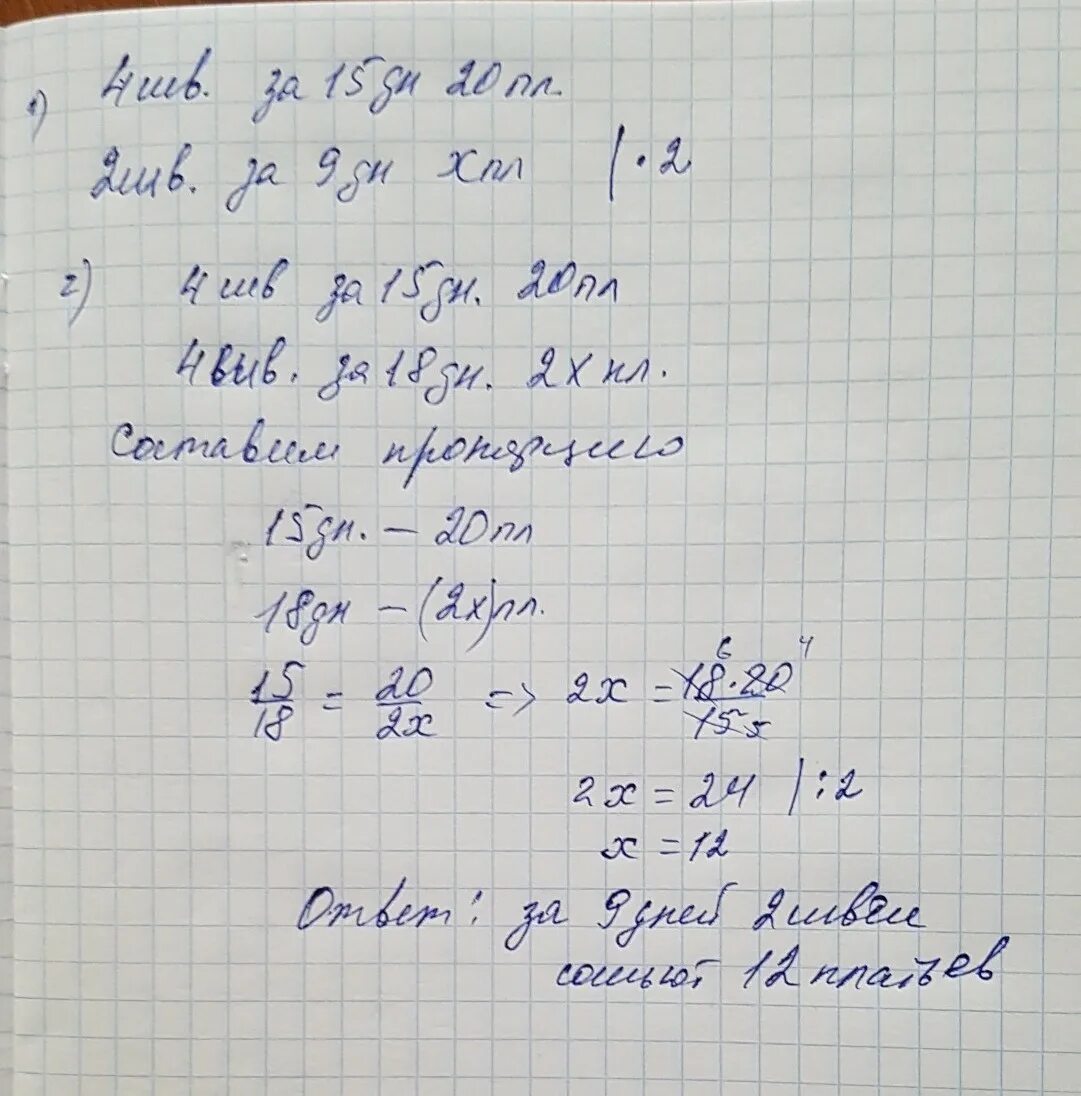 1) 4шв. за 15дн 20пл.
2шв. за 9дн хпл | · 2
2) 4шв за 15дн. 20пл
4шв. за 18дн. 2х пл.
Составим пропорцию
15дн. – 20пл
18дн – (2х)пл.
15/18 = 20/2х => 2х = 18·20/15 6 4 5
2х = 24 | : 2
х = 12
Ответ: за 9дней 2швеи
сошьют 12платьев